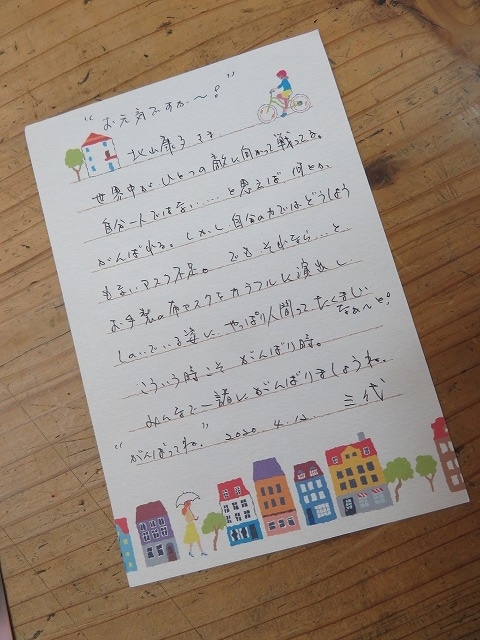 “お元気ですか〜！”
北山康子さま
世界中がひとつの敵に向かって戦ってる。
自分一人ではない……と思えば何とか
がんばれる。しかし自分の力ではどうしよう
もないマスク不足。でもそれなら…と
お手製の布マスクをカラフルに演出し
しのいでいる姿に、やっぱり人間ってたくましい
なぁ〜と！
こういう時こそがんばり時。
みんなで一諸にがんばりましょうね。
“がんばってね。” 2020.4.12. 三代